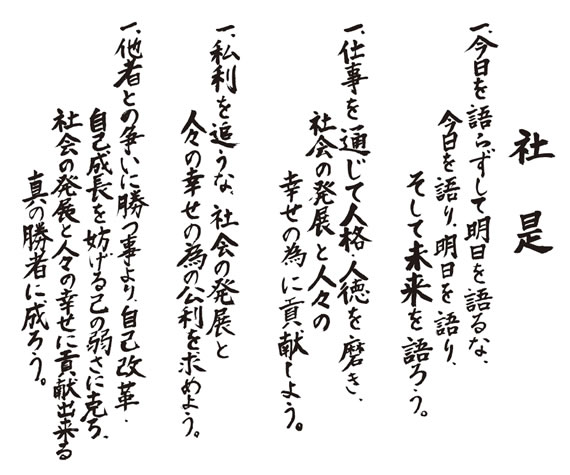 社是
一、今日を語らずして明日を語るな、
今日を語り、明日を語り、
そして未来を語ろう。
一、仕事を通じて人格・人徳を磨き、
社会の発展と人々の
幸せの為に貢献しよう。
一、私利を追うな、社会の発展と
人々の幸せの為の公利を求めよう。
一、他者との争いに勝つ事より、自己改革・
自己成長を妨げる己の弱さに克ち、
社会の発展と人々の幸せに貢献出来る
真の勝者に成ろう。